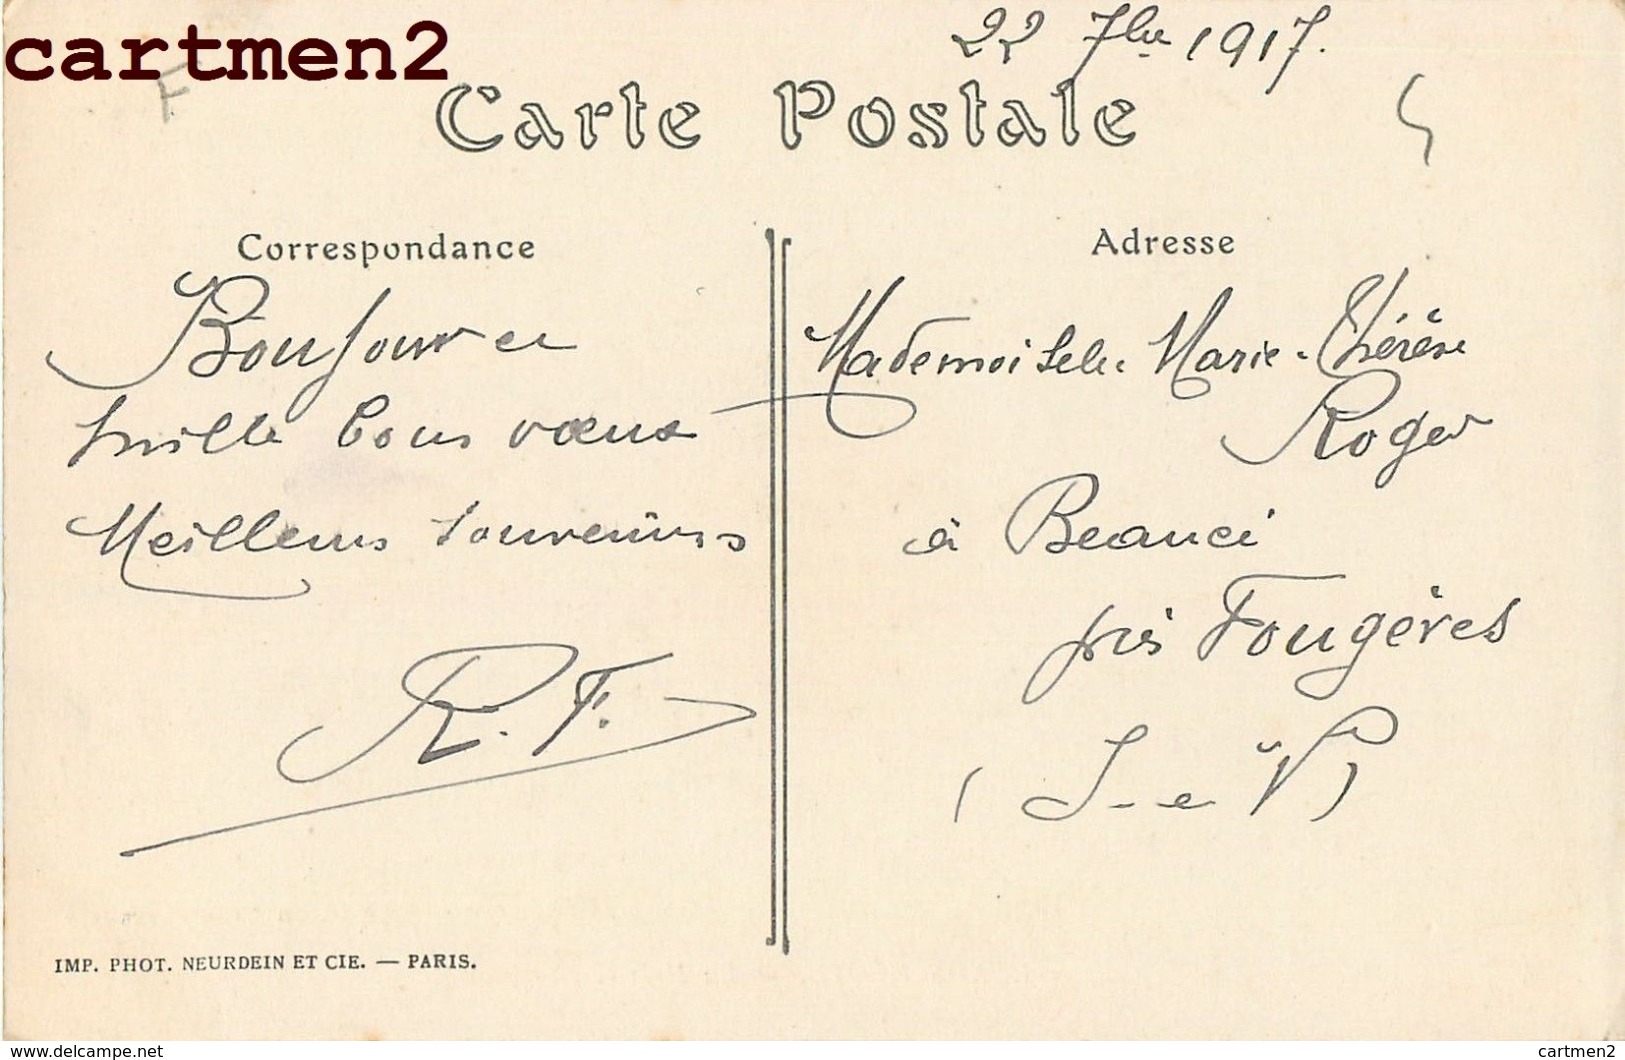 cartmen2
22 7bre 1917.
F
Carte Postale
Correspondance
Bonjour et
mille bons vœux
Meilleurs souvenirs
R. F.
IMP. PHOT. NEURDEIN ET CIE. — PARIS.
Adresse
Mademoiselle Marie-Thérèse
Roger
à Beaucé
près Fougères
(I-et V)
www.delcampe.net
cartmen2